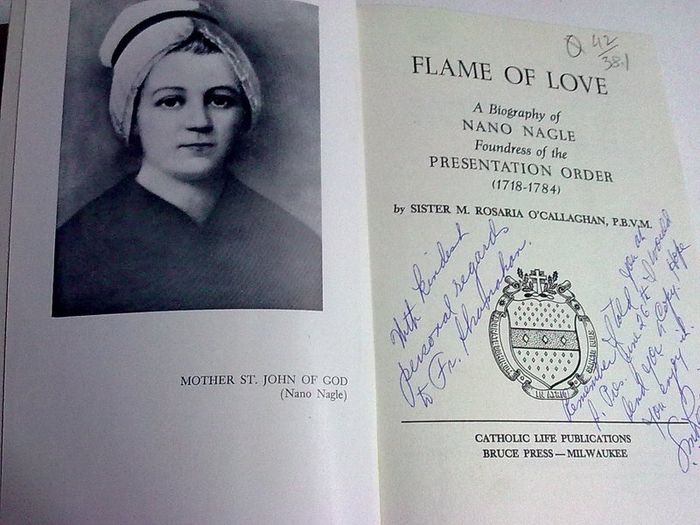 MOTHER ST. JOHN OF GOD
(Nano Nagle)
Q 42
38.1
FLAME OF LOVE
A Biography of
NANO NAGLE
Foundress of the
PRESENTATION ORDER
(1718-1784)
by SISTER M. ROSARIA O'CALLAGHAN, P.B.V.M.
With kindest
personal regards
to Fr. Shanahan.
Remember I told you at
St. Pas. June 26 I would
send you a copy. Hope
you enjoy it
CATHOLIC LIFE PUBLICATIONS
BRUCE PRESS—MILWAUKEE